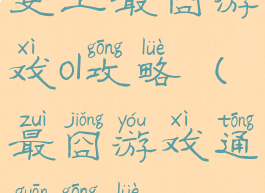 史上最囧游
xì gōng lüè
戏01攻略（
zuì jiǒng yóu xì tōng
最囧游戏通
guān gōng lüè